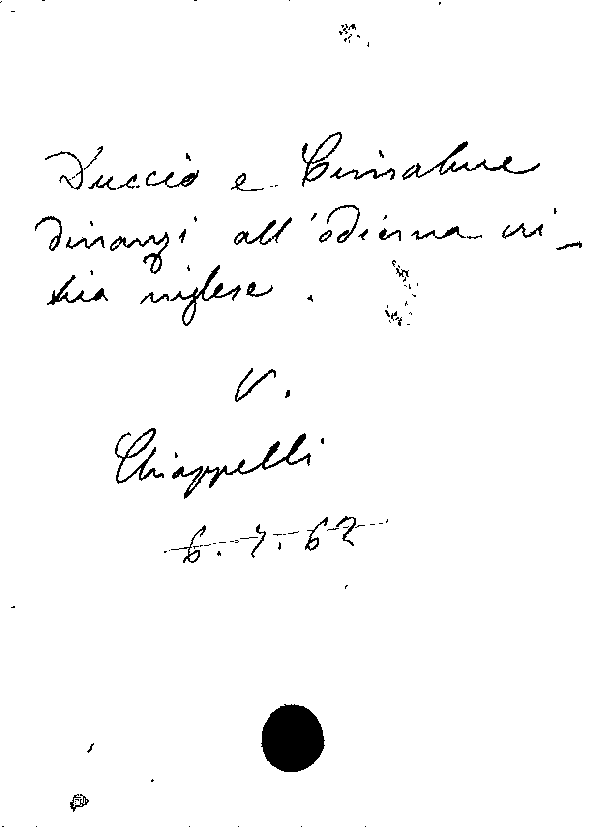 Duccio e Cimabue
dinanzi all'odierna cri-
tica inglese.
V.
Chiappelli
6.7.62